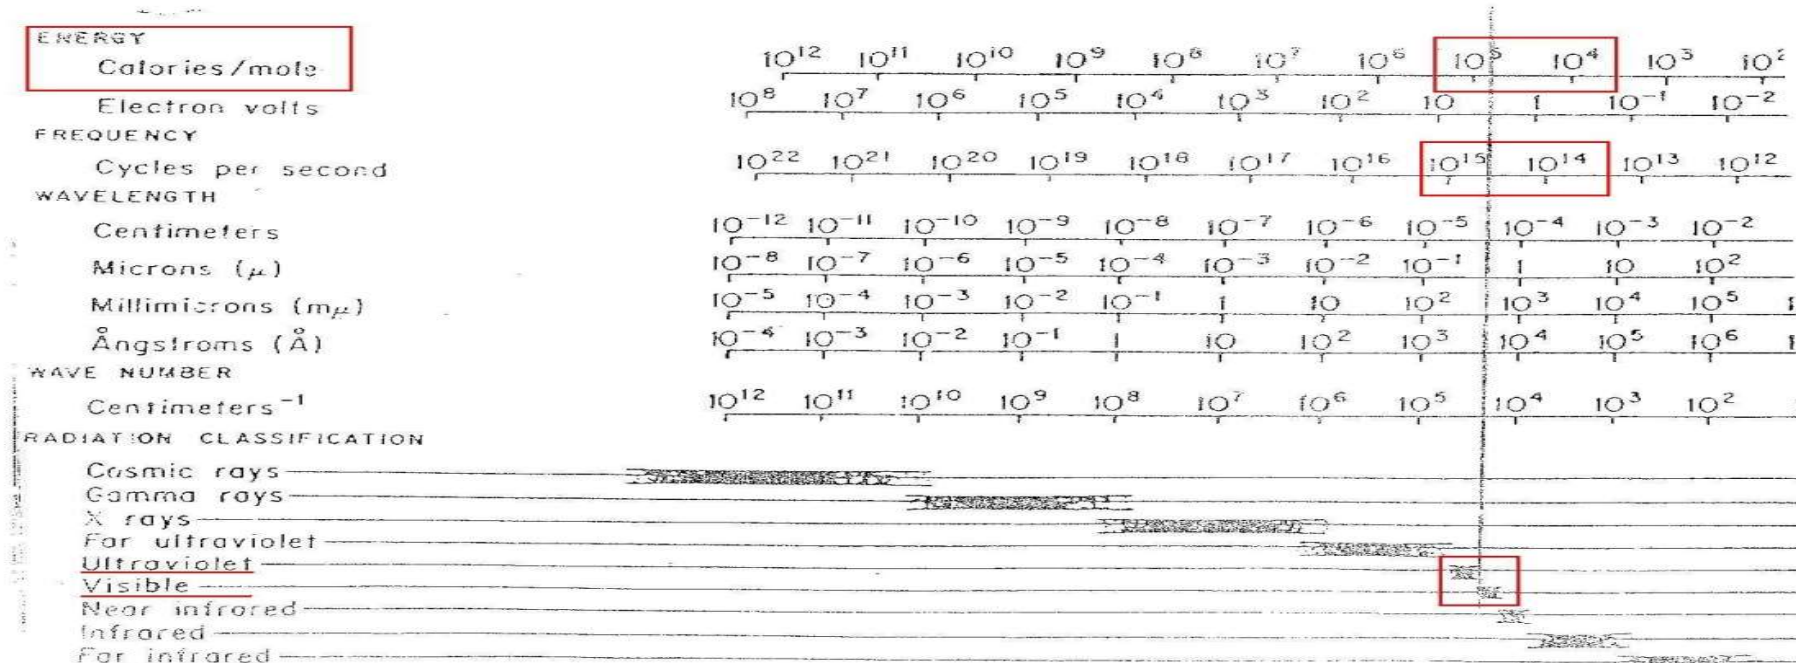 ENERGY
Calories/mole 10¹² 10¹¹ 10¹⁰ 10⁹ 10⁸ 10⁷ 10⁶ 10⁵ 10⁴ 10³ 10²
Electron volts 10⁸ 10⁷ 10⁶ 10⁵ 10⁴ 10³ 10² 10 1 10⁻¹ 10⁻²
FREQUENCY
Cycles per second 10²² 10²¹ 10²⁰ 10¹⁹ 10¹⁸ 10¹⁷ 10¹⁶ 10¹⁵ 10¹⁴ 10¹³ 10¹²
WAVELENGTH
Centimeters 10⁻¹² 10⁻¹¹ 10⁻¹⁰ 10⁻⁹ 10⁻⁸ 10⁻⁷ 10⁻⁶ 10⁻⁵ 10⁻⁴ 10⁻³ 10⁻²
Microns (μ) 10⁻⁸ 10⁻⁷ 10⁻⁶ 10⁻⁵ 10⁻⁴ 10⁻³ 10⁻² 10⁻¹ 1 10 10²
Millimicrons (mμ) 10⁻⁵ 10⁻⁴ 10⁻³ 10⁻² 10⁻¹ 1 10 10² 10³ 10⁴ 10⁵
Ångstroms (Å) 10⁻⁴ 10⁻³ 10⁻² 10⁻¹ 1 10 10² 10³ 10⁴ 10⁵ 10⁶
WAVE NUMBER
Centimeters⁻¹ 10¹² 10¹¹ 10¹⁰ 10⁹ 10⁸ 10⁷ 10⁶ 10⁵ 10⁴ 10³ 10²
RADIATION CLASSIFICATION
Cosmic rays
Gamma rays
X rays
Far ultraviolet
Ultraviolet
Visible
Near infrared
Infrared
Far infrared